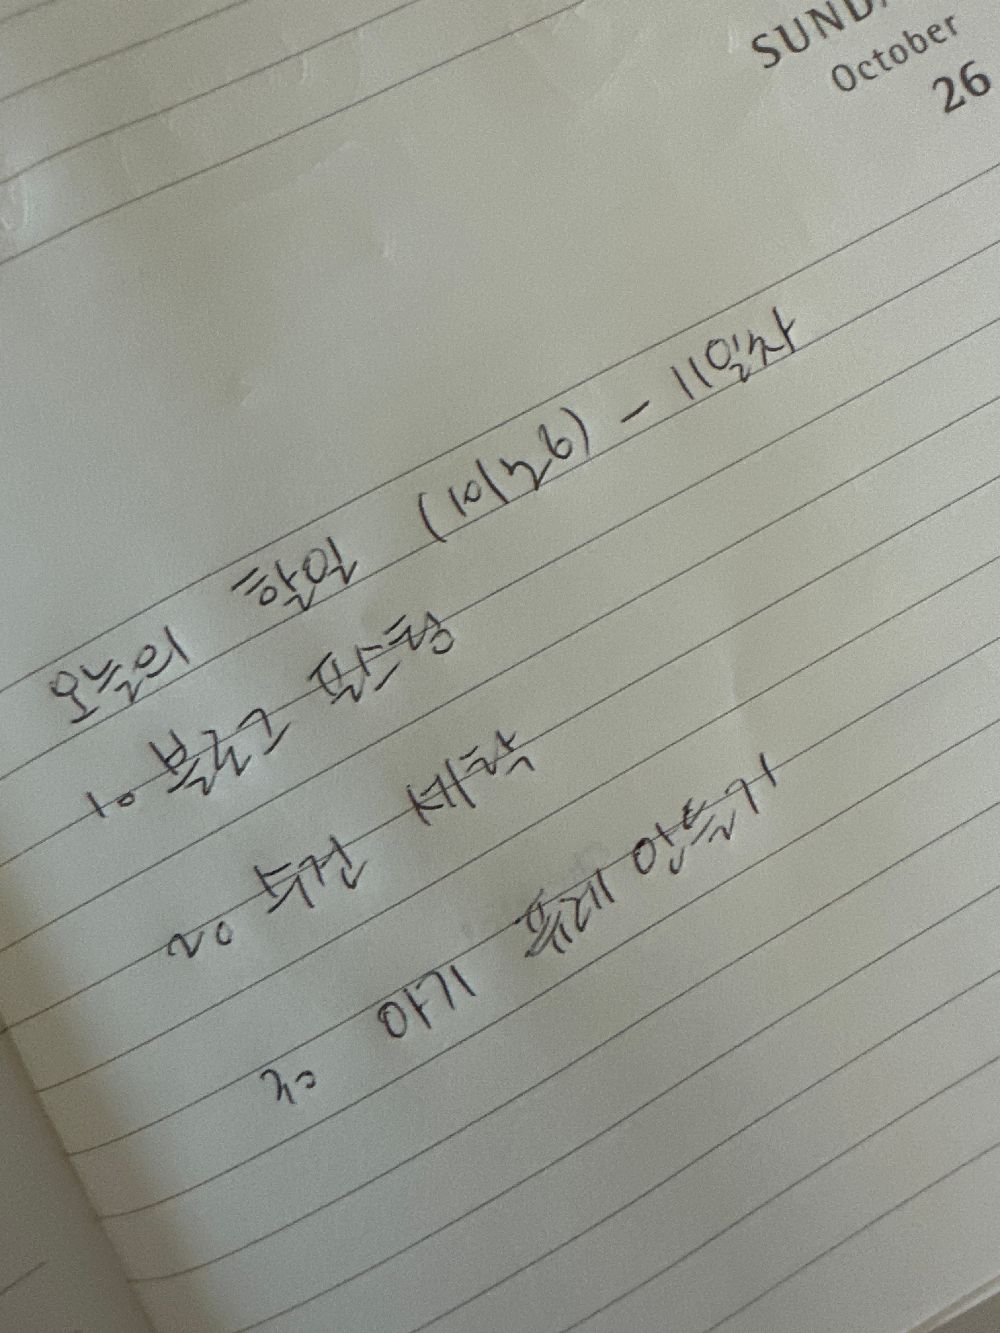 SUNDA
October
26
오늘의 할일 (10/26) - 11일차
1. 블로그 포스팅
2. 수건 세탁
3. 아기 퓨레 만들기